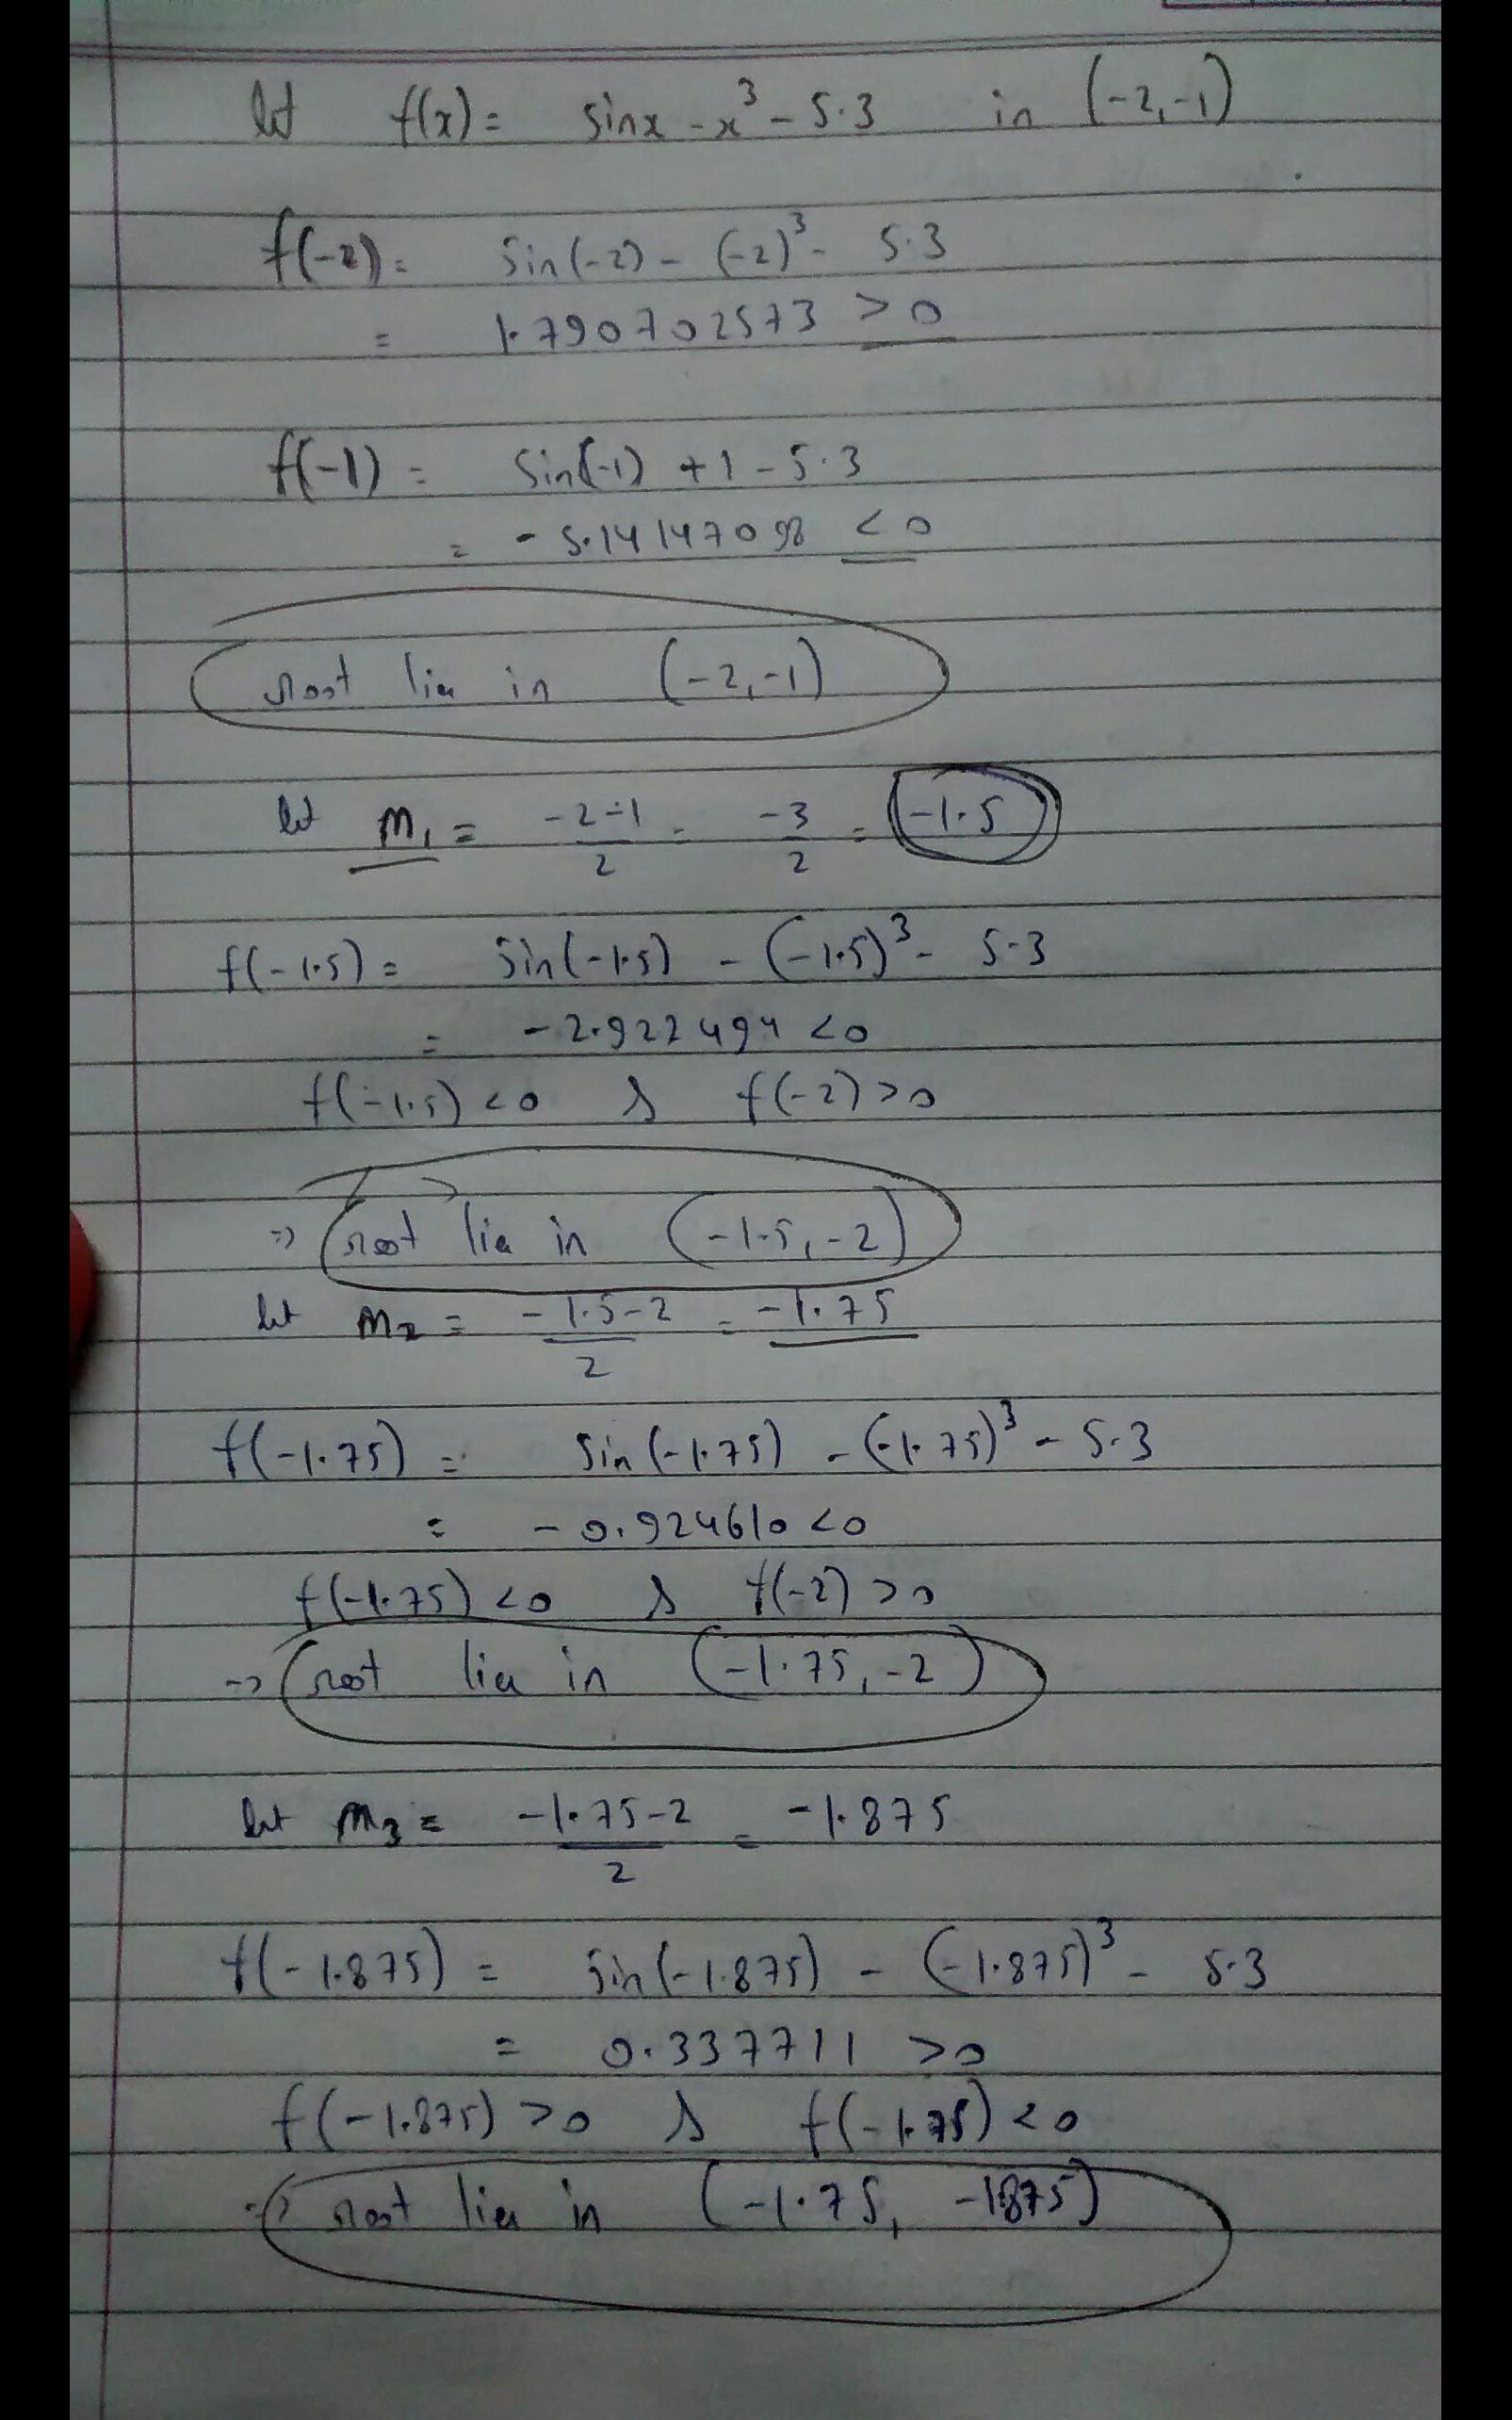 let f(x) = sinx - x³ - 5.3 in (-2,-1)
f(-2) = sin(-2) - (-2)³ - 5.3
= 1.790702573 > 0
f(-1) = sin(-1) + 1 - 5.3
= - 5.14147098 < 0
root lies in (-2,-1)
let m₁ = -2-1/2 = -3/2 = -1.5
f(-1.5) = sin(-1.5) - (-1.5)³ - 5.3
= -2.922494 < 0
f(-1.5) < 0 & f(-2) > 0
⇒ root lies in (-1.5,-2)
let m₂ = -1.5-2/2 = -1.75
f(-1.75) = sin(-1.75) - (-1.75)³ - 5.3
= -0.924610 < 0
f(-1.75) < 0 & f(-2) > 0
⇒ root lies in (-1.75,-2)
let m₃ = -1.75-2/2 = -1.875
f(-1.875) = sin(-1.875) - (-1.875)³ - 5.3
= 0.337711 > 0
f(-1.875) > 0 & f(-1.75) < 0
⇒ root lies in (-1.75, -1.875)